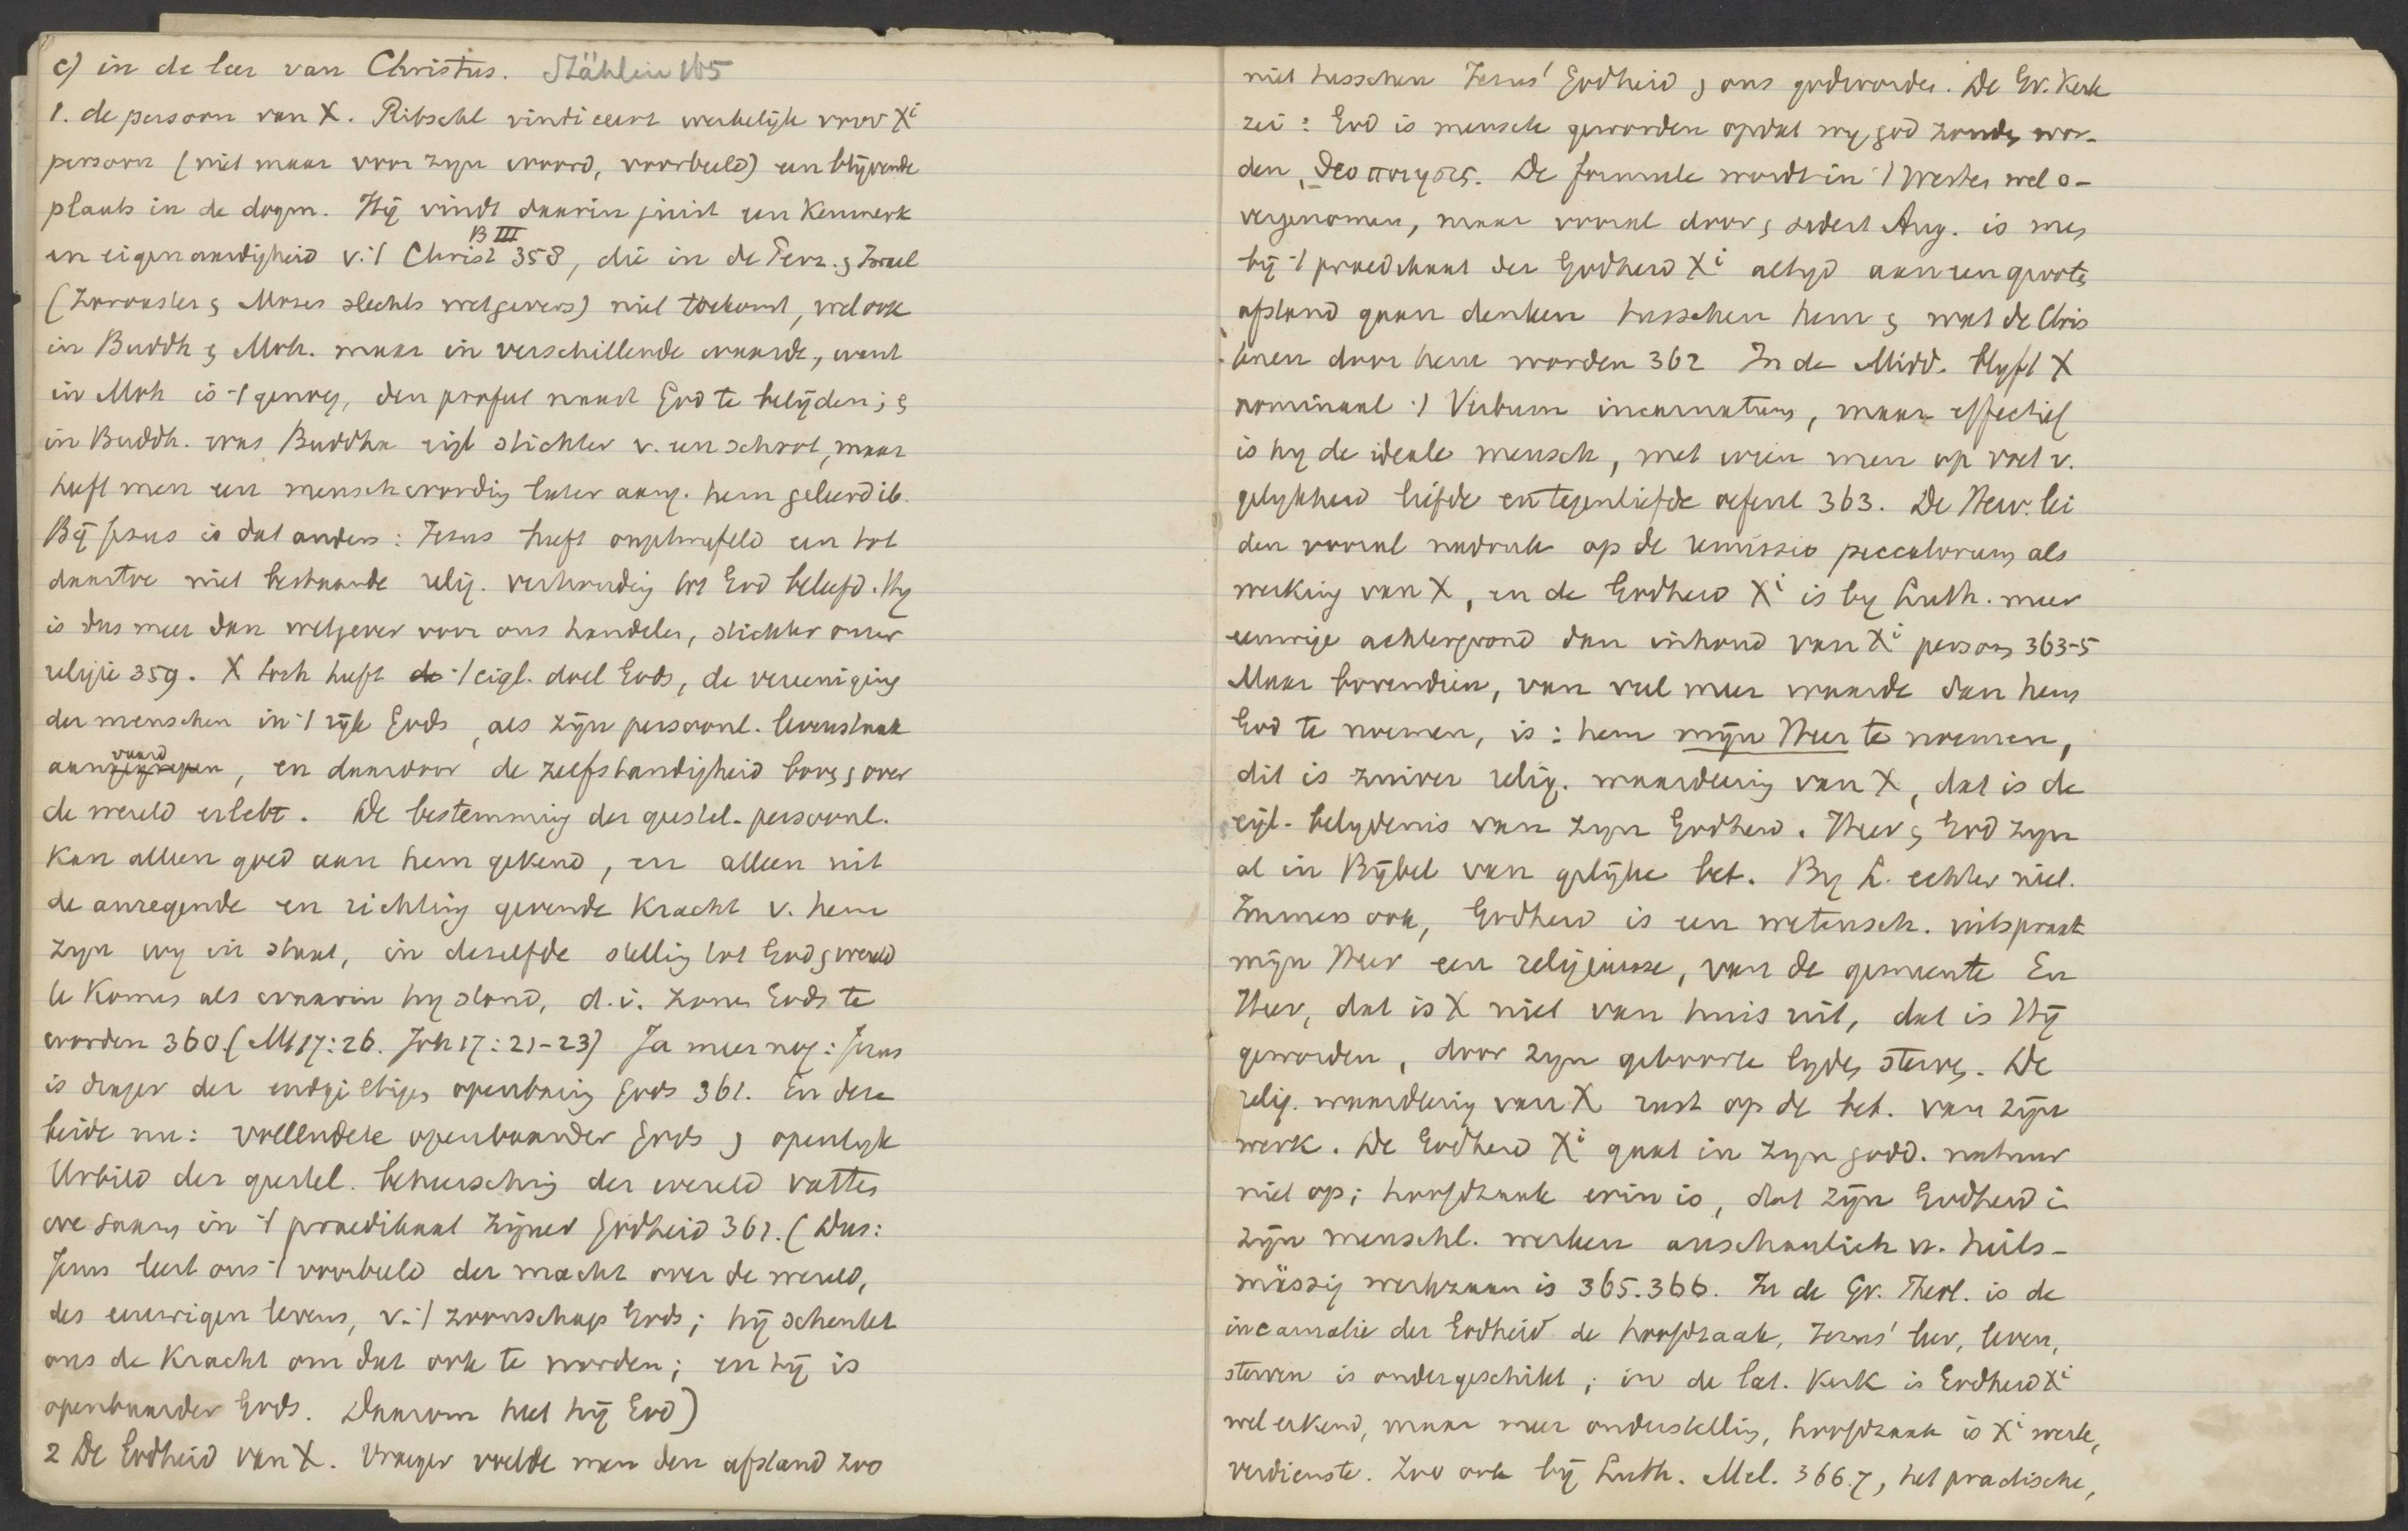 c) in de leer van Christus. Stählin 165
1. de persoon van X. Ritschl vindiceert werkelijk voor Xi
persoon (niet maar voor zyn woord, voorbeeld) een blijvende
plaats in de dogm. Hij vindt daarin juist een Kenmerk
en eigenaardigheid v. 't Christ B III 358, die in de Perz. & Israel
(Zoroaster & Mozes slechts wetgevers) niet toekomt, wel ook
in Buddh & Moh. maar in verschillende waarde, want
in Moh is 't genoeg, den profeet naast God te belijden; &
in Buddh. was Buddha eigl stichter v. een school, maar
heeft men een menschwording later aang. hem geleerd ib.
Bij Jezus is dat anders: Jezus heeft ongetwijfeld een tot
daartoe niet bestaande relig. verhouding tot God beleefd. Hy
is dus meer dan wetgever voor ons handelen, stichter onzer
religie 359. X toch heeft de 't eigl. doel Gods, de vereeniging
der menschen in 't rijk Gods, als zijn persoonl. levenstaak
aanvaard, en daardoor de zelfstandigheid boven & over
de wereld erlebt. De bestemming der geestel. persoonl.
Kan alleen goed aan hem gekend, en alleen uit
de anregende en richting gevende Kracht v. hem
zyn wy in staat, in dezelfde stelling tot God & wereld
te Komen als waarin hy stond, d.i. zonen Gods te
worden 360. (Mt 17:26. Joh 17:21-23) Ja meer nog: Jezus
is drager der endgiltigen openbaring Gods 361. En deze
beide nu: vollendete openbaarder Gods & openlyk
Urbild der geestel. beheersching der wereld vatten
we samen in 't praedikaat zijner Godheid 362. (Dus:
Jezus leert ons 't voorbeeld der macht over de wereld,
des eeuwigen levens, v. 't zoonschap Gods; hij schenkt
ons de Kracht om dat ook te worden; en hij is
openbaarder Gods. Daarom heet hij God)
2 De Godheid van X. Vroeger voelde men den afstand zoo
niet tusschen Jezus' Godheid & ons godworden. De Gr. Kerk
zei: God is mensch geworden opdat wy god zouden wor-
den, θεοποιησις. De formule wordt in 't Westen wel o-
vergenomen, maar vooral door & sedert Aug. is men
bij 't praedikaat der Godheid Xi altyd aan een grooten
afstand gaan denken tusschen hem & wat de Chris
tenen door hem worden 362 In de Midd. blyft X
nominaal 't Verbum incarnatum, maar effectief
is hy de ideale mensch, met wien men op voet v.
gelykheid liefde en tegenliefde oefent 363. De Herv. lei
den vooral nadruk op de remissio peccatorum als
werking van X, en de Godheid Xi is by Luth. meer
eeuwige achtergrond dan inhoud van Xi persoon 363-5
Maar bovendien, van veel meer waarde dan hem
God te noemen, is: hem mijn Heer te noemen,
dit is zuiver relig. waardeering van X, dat is de
eigl. belydenis van zyn Godheid. Heer & God zyn
al in Bijbel van gelijke bet. By L. echter niet.
Immers ook, Godheid is een wetensch. uitspraak
mijn Heer een religieuse, van de gemeente En
Heer, dat is X niet van huis uit, dat is Hij
geworden, door zyn geboorte lyden sterven. De
relig. waardeering van X rust op de bet. van zijn
werk. De Godheid Xi gaat in zyn godd. natuur
niet op; hoofdzaak erin is, dat zijn Godheid in
zijn menschl. werken anschaulich u. heils-
mässig werkzaam is 365.366. In de Gr. Theol. is de
incarnatie der Godheid de hoofdzaak, Jezus' leer, leven,
sterven is ondergeschikt; in de lat. Kerk is Godheid Xi
wel erkend, maar meer onderstelling, hoofdzaak is Xi werk,
verdienste. Zoo ook bij Luth. Mel. 366.7, het practische,